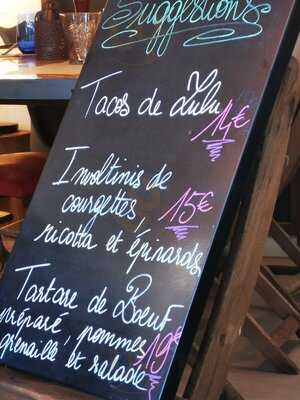 Suggestions
Tacos de Lulu
14€
Involtinis de
courgettes, 15€
ricotta et épinards
Tartare de Bœuf
préparé, pommes 19€
grenaille et salade